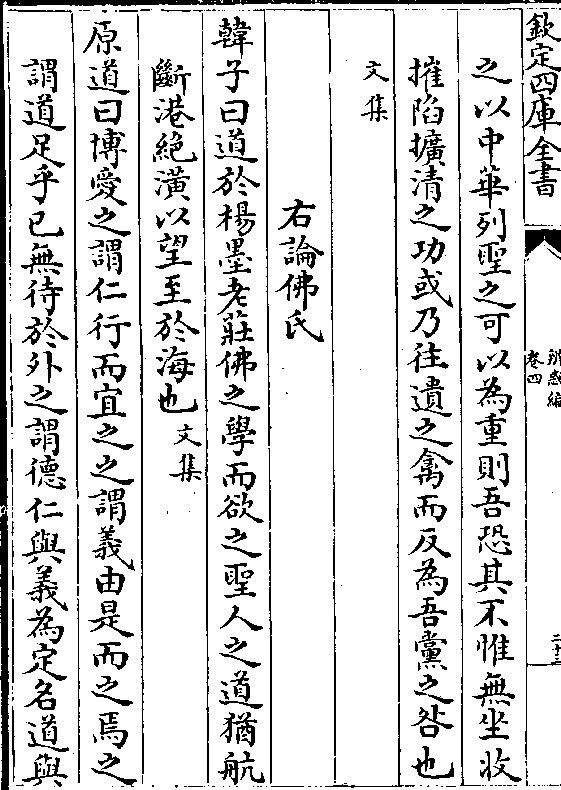 欽定四庫全書
辨惑編
卷四
二十二
之以中華列聖之可以為重則吾恐其不惟無坐收
摧陷擴清之功或乃往遺之禽而反為吾黨之咎也
文集
右論佛氏
韓子曰道於楊墨老莊佛之學而欲之聖人之道猶航
斷港絶潢以望至於海也文集
原道曰博愛之謂仁行而宜之之謂義由是而之焉之
謂道足乎已無待於外之謂德仁與義為定名道與